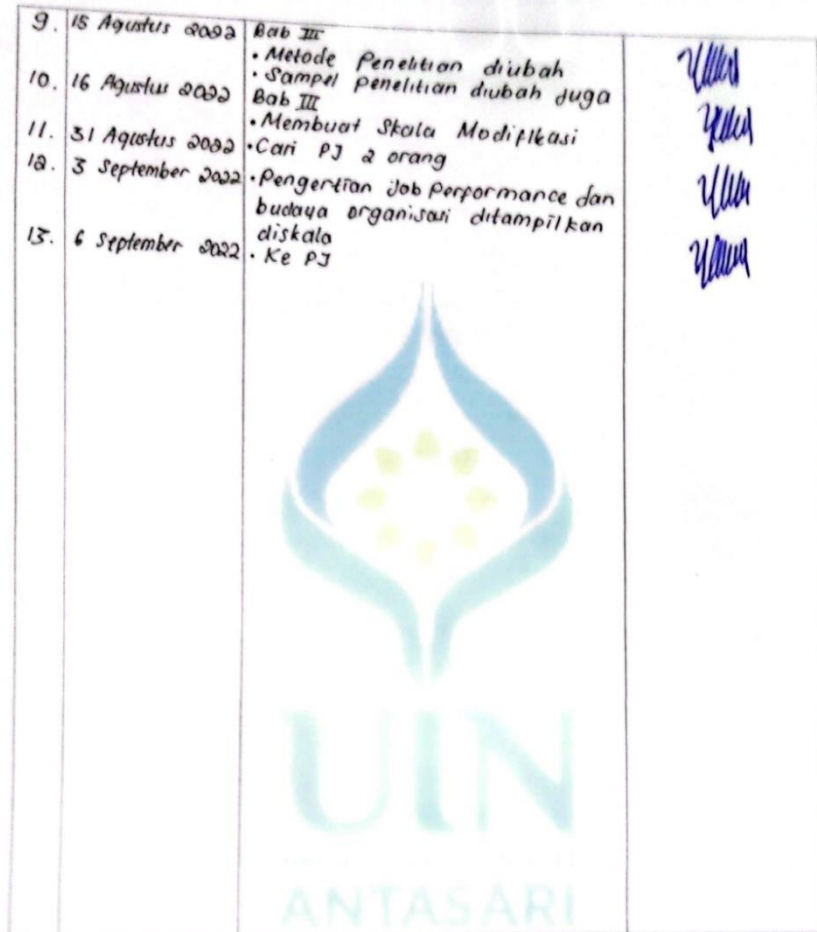 9. 15 Agustus 2022 Bab III
• Metode Penelitian diubah
• Sampel Penelitian diubah Juga
10. 16 Agustus 2022 Bab III
• Membuat Skala Modifikasi
11. 31 Agustus 2022 • Cari PJ 2 orang
12. 3 September 2022 • Pengertian Job Performance dan
budaya organisasi ditampilkan
diskala
13. 6 September 2022 • Ke PJ
UIN
ANTASARI